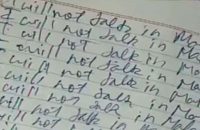 I will not talk in Ma
I will not talk in Ma
I will not talk in Ma
I will not talk in Ma
will not talk in Ma
will not talk in Ma
will not talk in Ma
will not talk in Ma
will not talk in